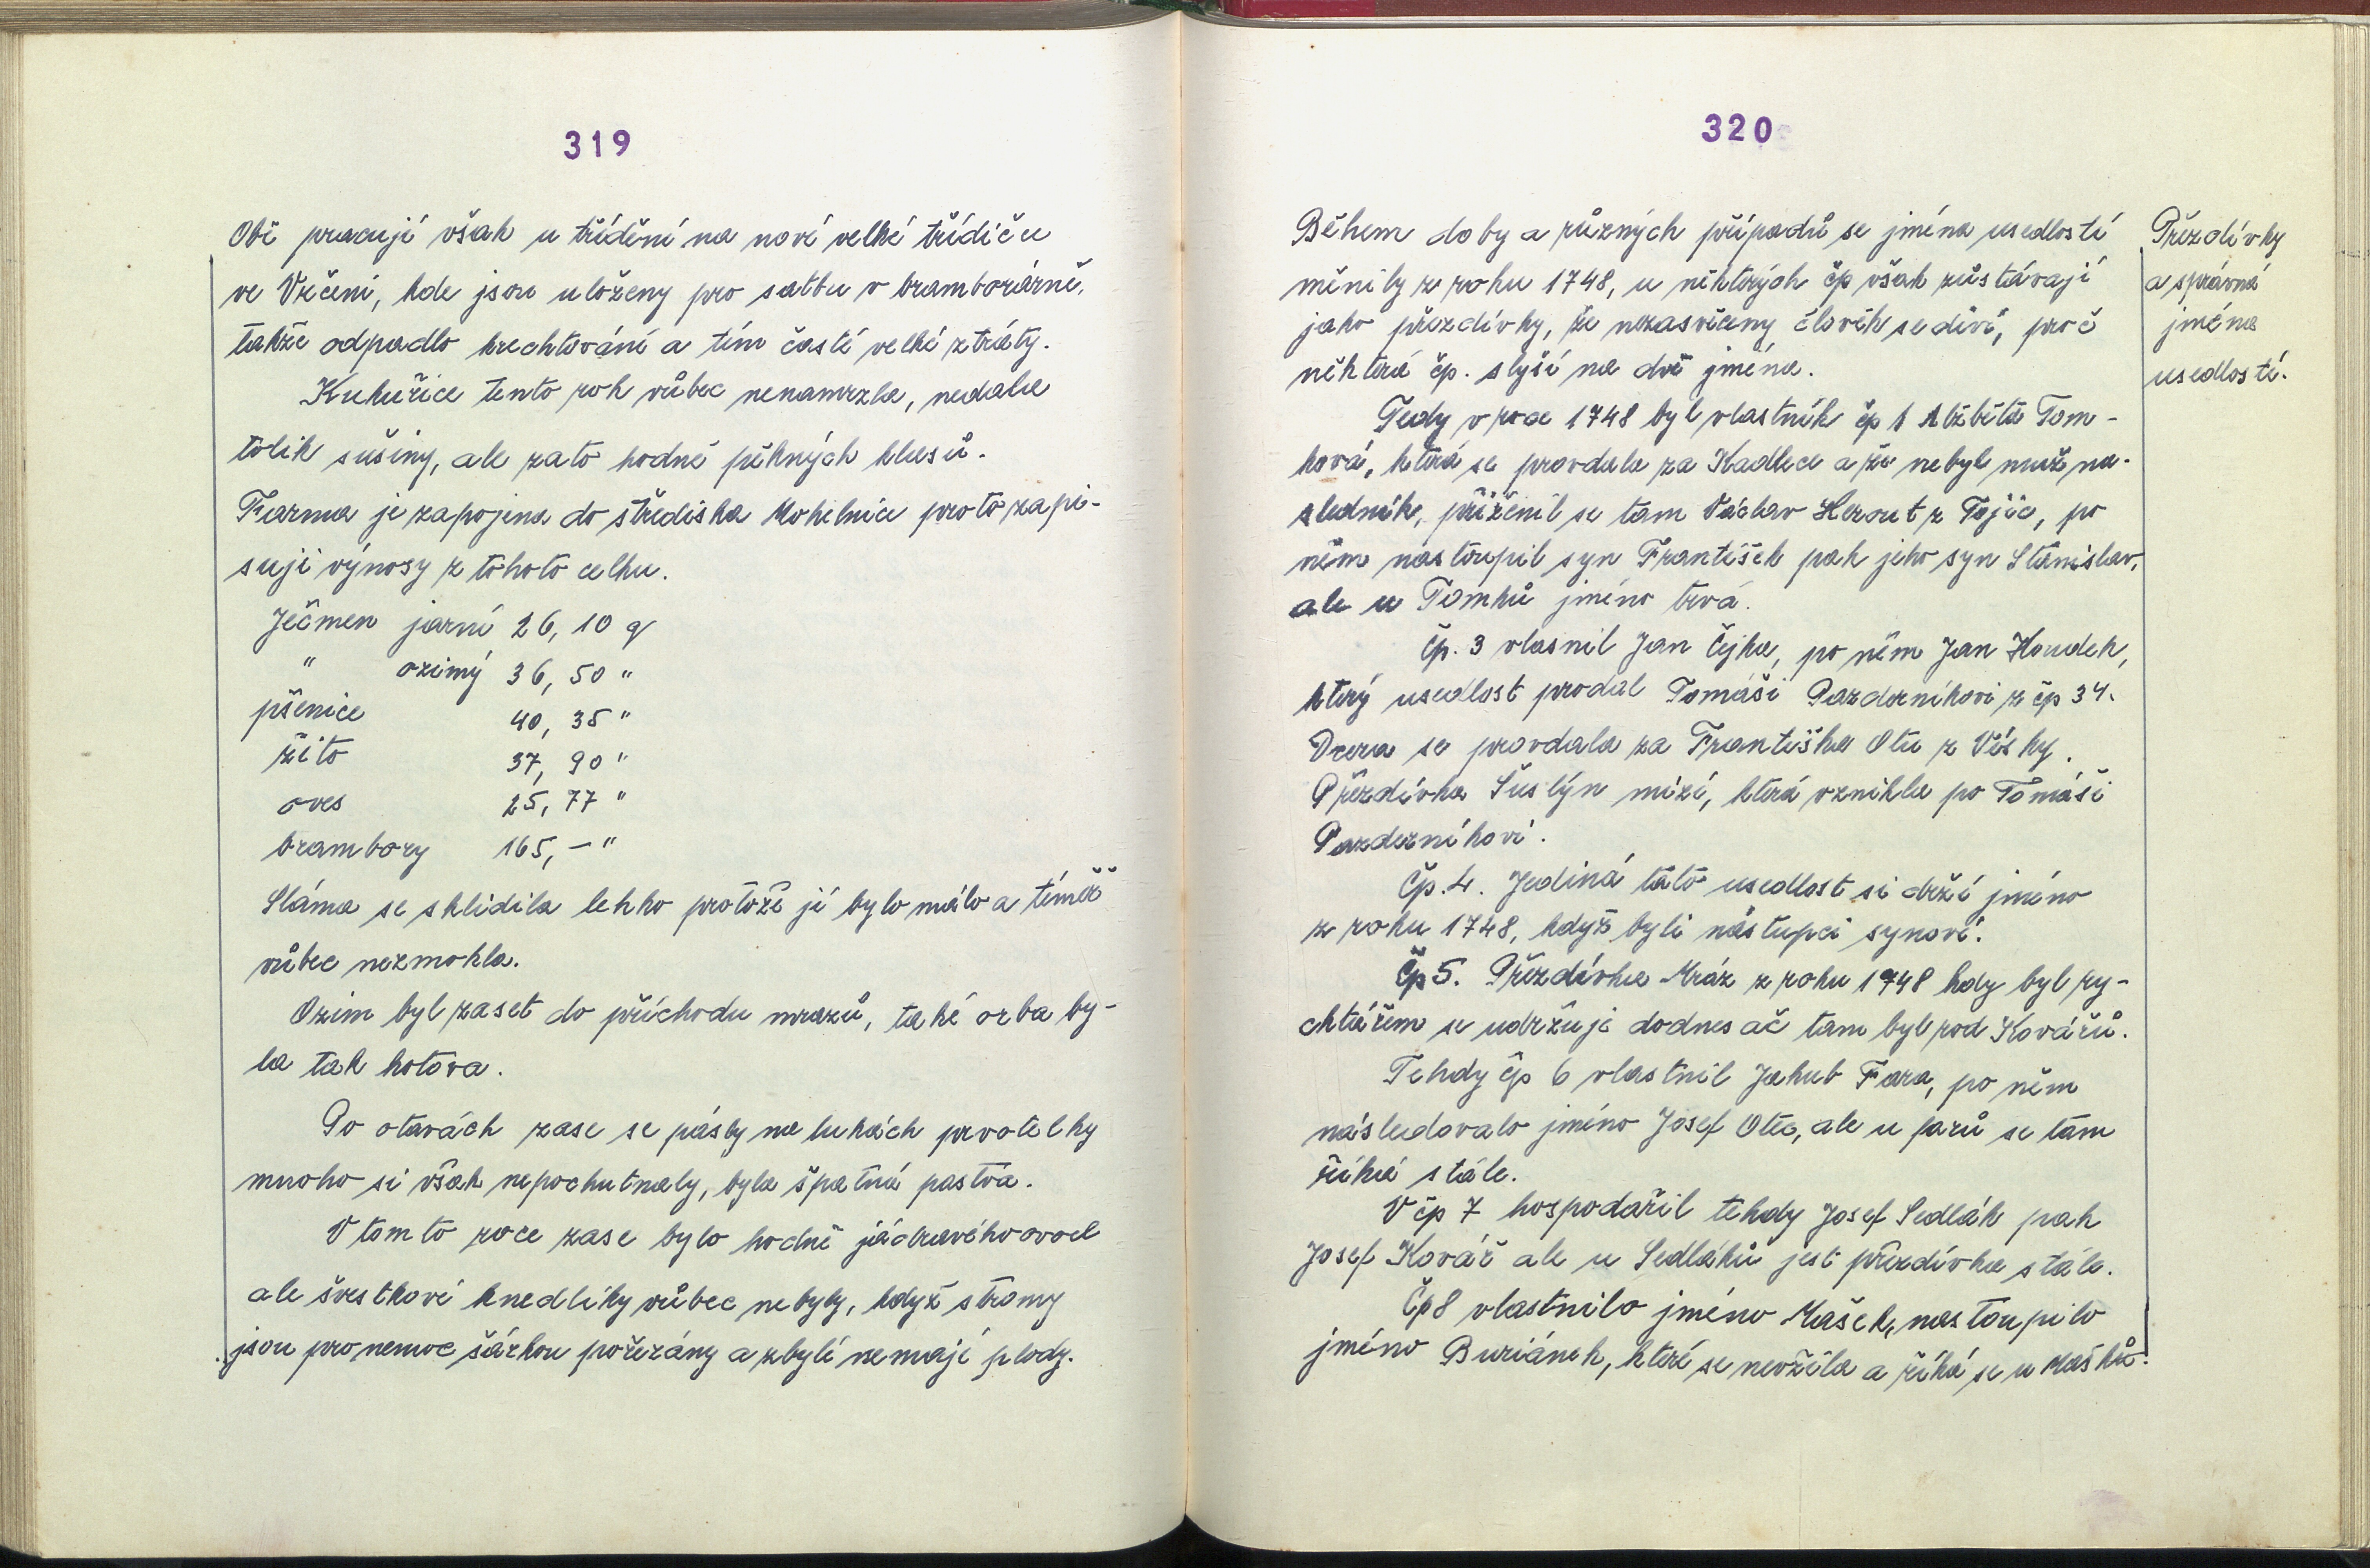 319
Obě pracují však u třídění na nové velké třídič u
ve Vrčeni, kde jsou uloženy pro satbu v bramborárně,
takže odpadlo krechtování a tím časté velké ztráty.
Kukuřice tento rok vůbec nenamrzla, nedala
tolik sušiny, ale zato hodně pěkných klasů.
Farma je zapojena do střediska Mohelnice proto zapi-
suji výnosy z tohoto celku.
Ječmen jarní 26, 10 q
" ozimý 36, 50 "
pšenice 40, 35 "
žito 37, 90 "
oves 25, 77 "
brambory 165, — "
Sláma se sklidila lehko protože jí bylo málo a téměř
vůbec nezmokla.
Ozim byl zaset do příchodu mrazů, také orba by-
la tak hotova.
Po otavách zase se pásly na lukách prvotelky
mnoho si však nepochutnaly, byla špatná pastva.
V tomto roce zase bylo hodně jádravého ovoce
ale švestkové knedlíky vůbec nebyly, když stromy
jsou pro nemoc šárkou pořezány a zbylé nemají plody.
320
Přezdívky
a správná
jména
usedlostí.
Během doby a různých případů se jména usedlostí
měnily z roku 1748, u některých čp však zůstávají
jako přezdívky, že nezasvěcený člověk se diví, proč
některá čp. slyší na dvě jména.
Tedy v roce 1748 byl vlastník čp 1 Alžběta Tom-
ková, která se provdala za Kadlece a že nebyl muž ná-
sledník, přiženil se tam Václav Herout z Tojic, po
něm nastoupil syn František pak jeho syn Stanislav,
ale u Tomků jméno trvá.
Čp. 3 vlasnil Jan Čejka, po něm Jan Houdek,
který usedlost prodal Tomáši Pazderníkovi z čp 34.
Dcera se provdala za Františka Otu z Vísky.
Přezdívka Šuslýn mizí, která vznikla po Tomáši
Pazderníkovi.
Čp. 4. Jediná tato usedlost si drží jméno
z roku 1748, když byli nástupci synové.
Čp 5. Přezdívka Mráz z roku 1748 kdy byl ry-
chtářem se udržuje dodnes ač tam byl rod Kovářů.
Tehdy čp 6 vlastnil Jakub Fara, po něm
následovalo jméno Josef Ota, ale u farů se tam
říká stále.
V čp 7 hospodařil tehdy Josef Sedlák pak
Josef Kovář ale u Sedláků jest přezdívka stále.
Čp 8 vlastnilo jméno Mašek, nastoupilo
jméno Buriánek, které se nevžila a říká se u Mašků.